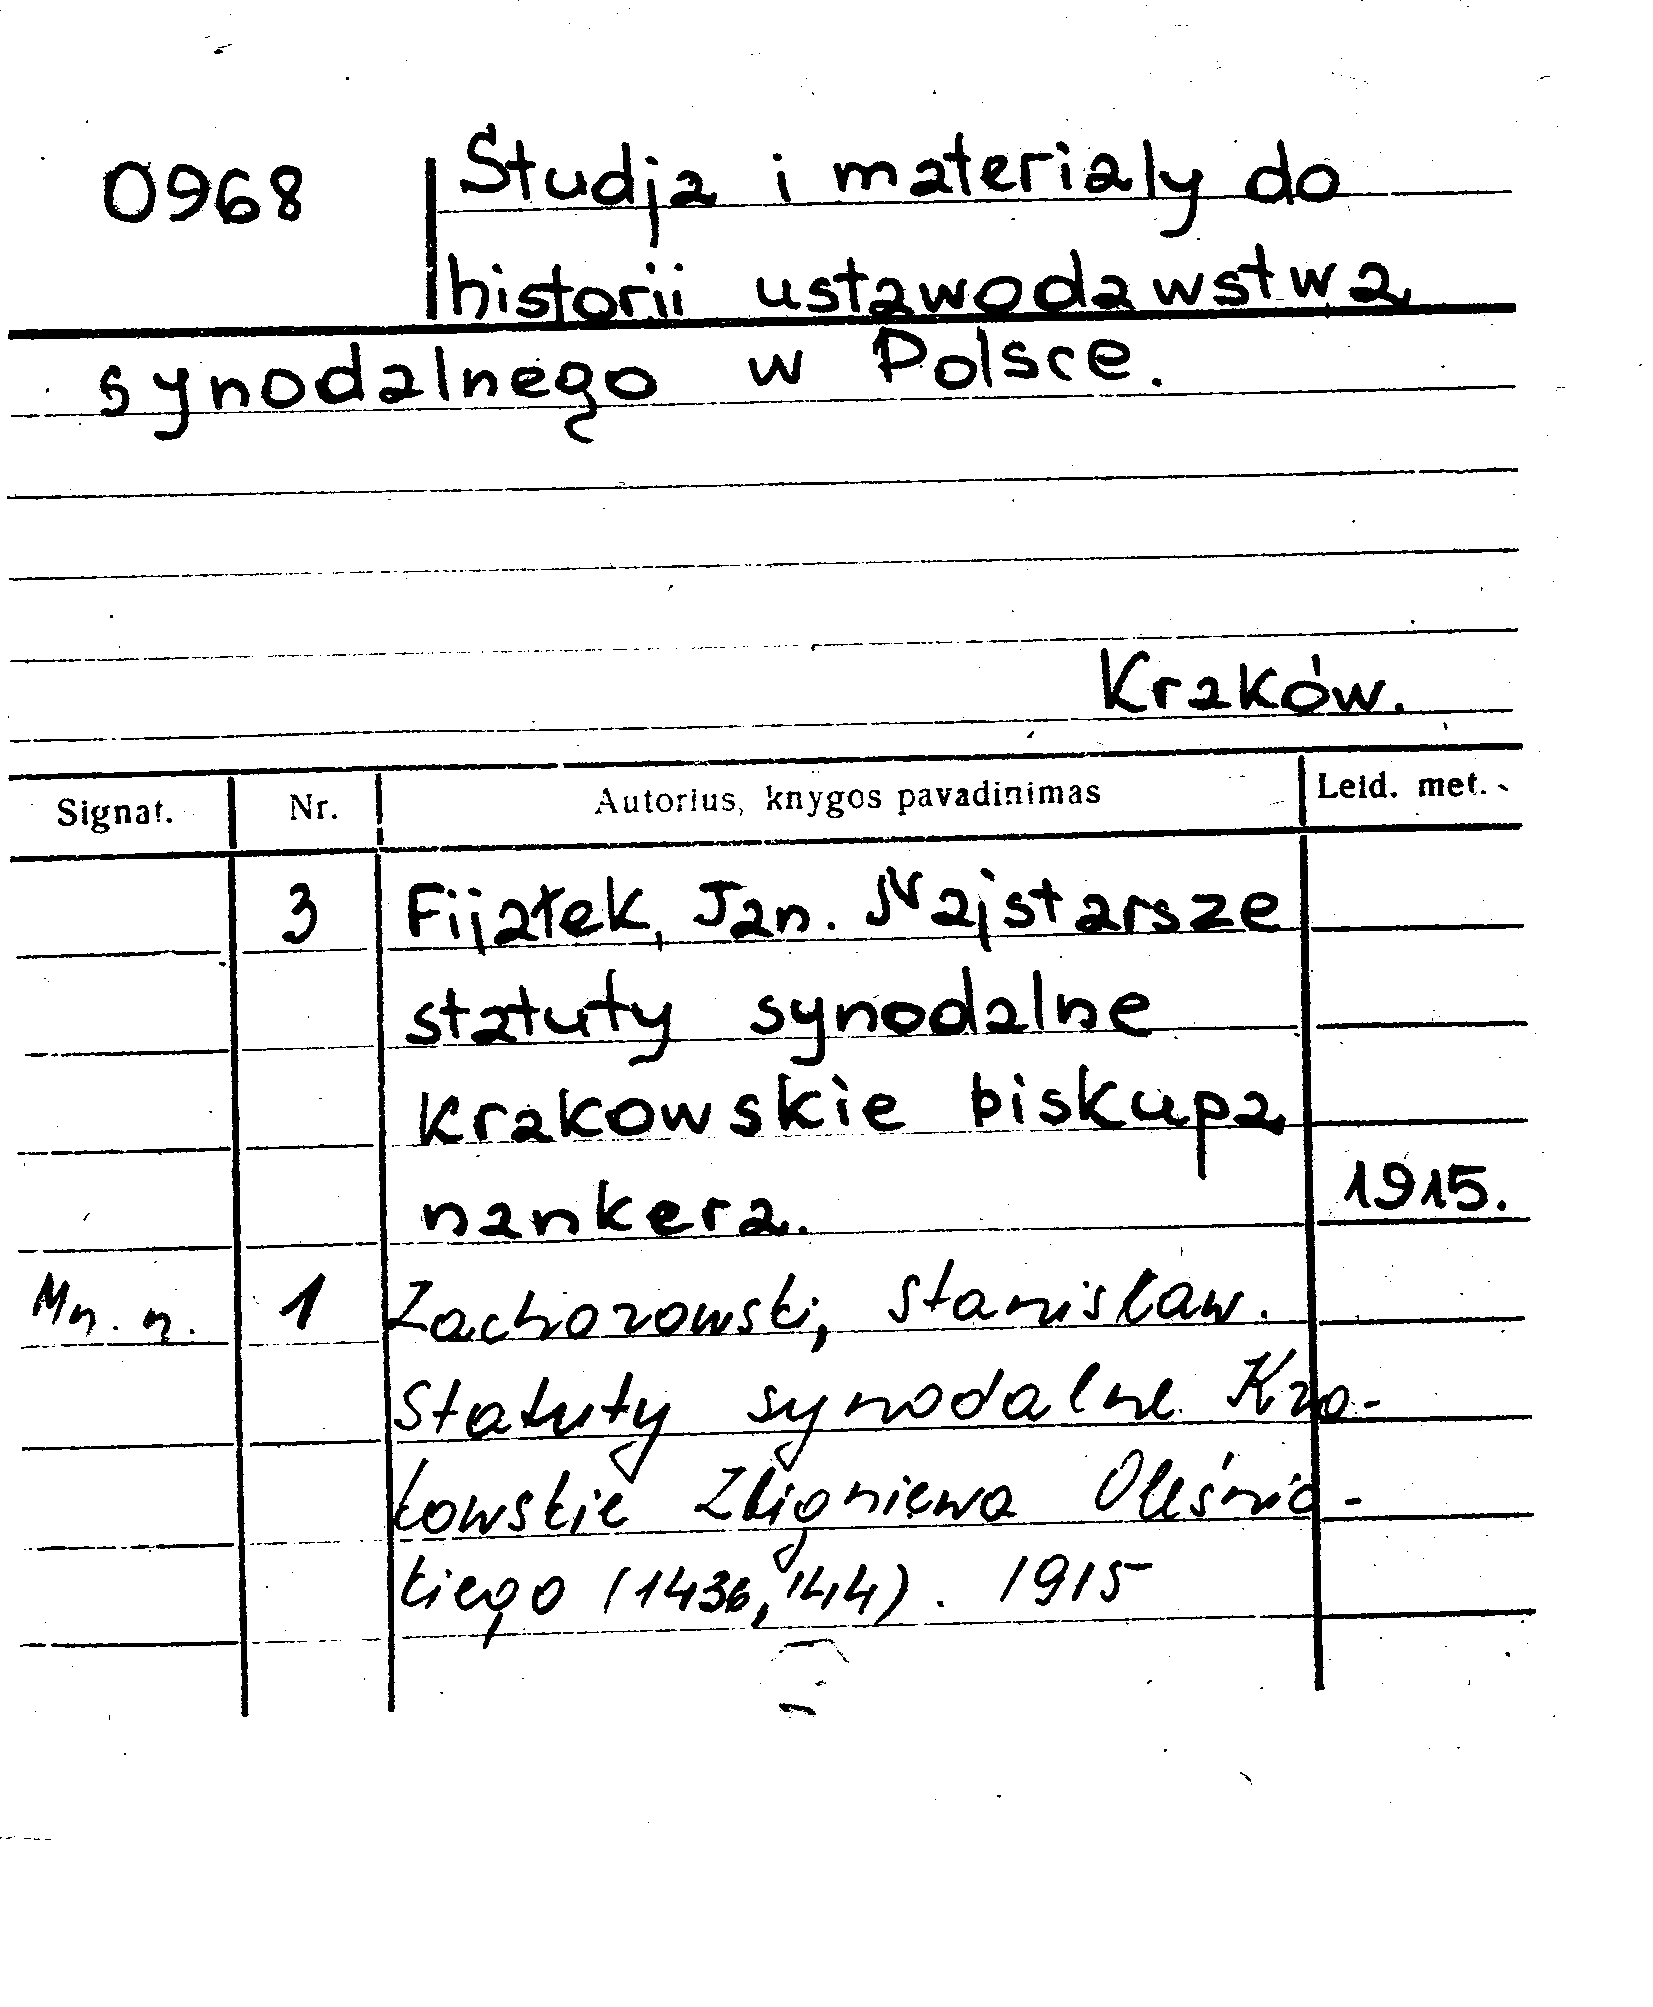 0968 Studja i materialy do
historii ustawodawstwa
synodalnego w Polsce.
Kraków.
Signat. Nr. Autorius, knygos pavadinimas Leid. met.
3 Fijałek, Jan. Najstarsze
statuty synodalne
krakowskie biskupa
nankera. 1915.
Mn. n. 1 Zachorowski, Stanisław.
Statuty synodalne Kra-
kowskie Zbigniewa Oleśnic-
kiego (1436, 1414). 1915